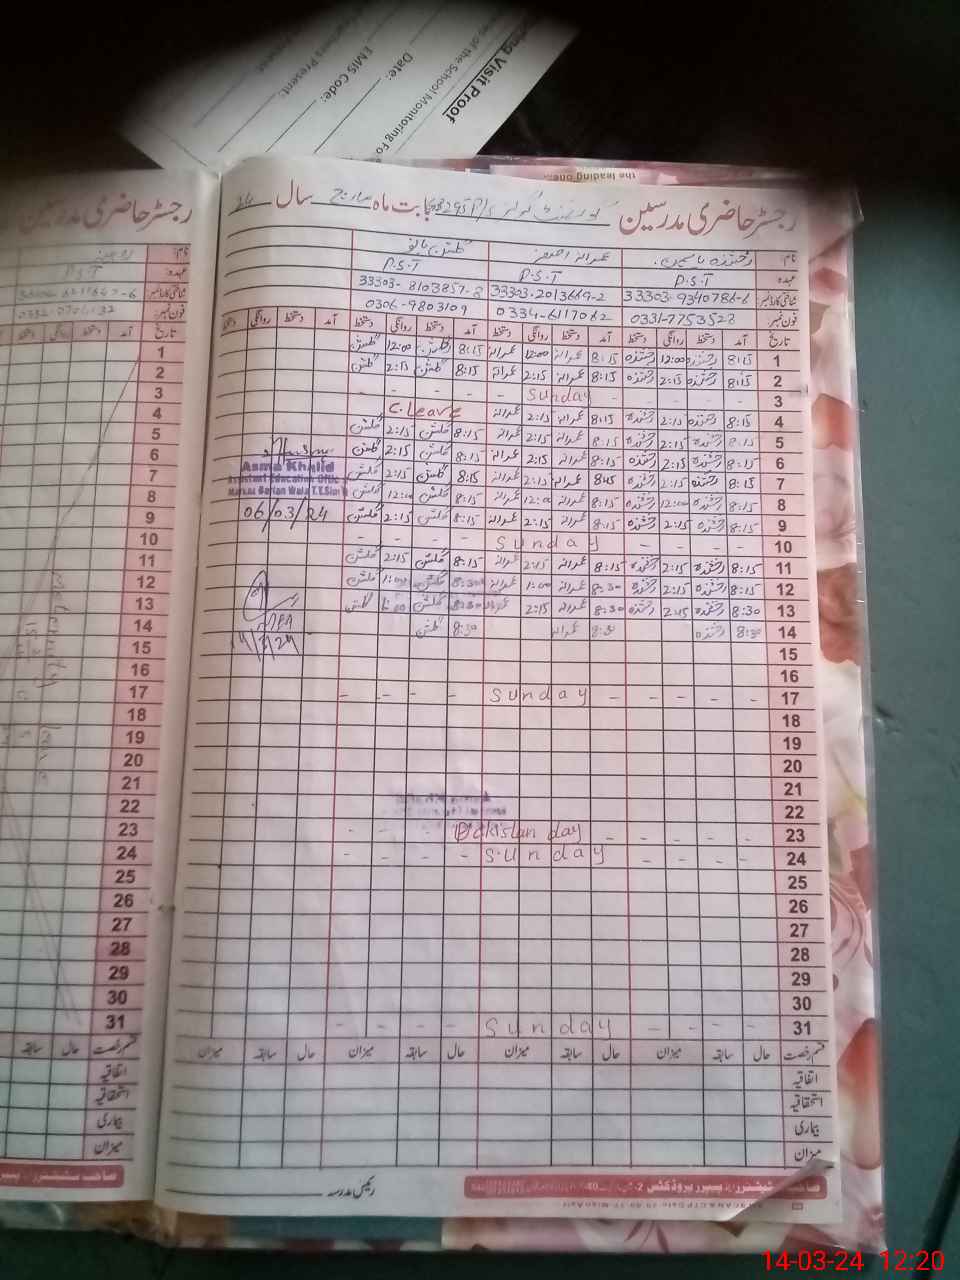 ng Visit Proof
of the School Monitoring Fo
Date:
EMIS Code:
Present:
the leading one...
رجسٹر حاضری مدرسین بابت ماہ مارچ سال 24
نام رخشندہ یاسمین عمرانہ اصغر گلشن بانو
عہدہ P.S.T P.S.T P.S.T
شناختی کارڈ نمبر 33303-9340786-6 33303-2013669-2 33303-8103857-8
فون نمبر 0331-7753528 0334-6117062 0306-9803109
تاریخ آمد دستخط روانگی دستخط آمد دستخط روانگی دستخط آمد دستخط روانگی دستخط آمد دستخط روانگی دستخط
1 8:15 رخشندہ 12:00 رخشندہ 8:15 عمرانہ 12:00 عمرانہ 8:15 گلشن 12:00 گلشن
2 8:15 رخشندہ 2:15 رخشندہ 8:15 عمرانہ 2:15 عمرانہ 8:15 گلشن 2:15 گلشن
3 - - - - Sunday - - - -
4 8:15 رخشندہ 2:15 رخشندہ 8:15 عمرانہ 2:15 عمرانہ C.Leave
5 8:15 رخشندہ 2:15 رخشندہ 8:15 عمرانہ 2:15 عمرانہ 8:15 گلشن 2:15 گلشن
6 8:15 رخشندہ 2:15 رخشندہ 8:15 عمرانہ 2:15 عمرانہ 8:15 گلشن 2:15 گلشن
7 8:15 رخشندہ 2:15 رخشندہ عمرانہ 2:15 عمرانہ 8:15 گلشن 2:15 گلشن
Asma Khalid
Assistant Education Office
8 8:15 رخشندہ 12:00 رخشندہ 8:15 عمرانہ 12:00 عمرانہ 8:15 گلشن 12:00 گلشن
9 8:15 رخشندہ 2:15 رخشندہ 8:15 عمرانہ 2:15 عمرانہ 8:15 گلشن 2:15 گلشن
06/03/24
10 - - - - Sunday - - - -
11 8:15 رخشندہ 2:15 رخشندہ 8:15 عمرانہ 2:15 عمرانہ 8:15 گلشن 2:15 گلشن
12 8:15 رخشندہ 2:15 رخشندہ 8:30 عمرانہ 1:00 عمرانہ 8:30 گلشن 1:00 گلشن
13 8:30 رخشندہ 2:15 رخشندہ 8:30 عمرانہ 2:15 عمرانہ 8:30 گلشن گلشن
14 8:30 رخشندہ 8:30 عمرانہ 8:30 گلشن
14/3/24
15
16
17 - - - - Sunday - - - -
18
19
20
21
22
23 - - - - Pakistan day - - - -
24 - - - - Sunday - - - -
25
26
27
28
29
30
31 - - - - Sunday - - - -
قسم رخصت حال سابقہ میزان حال سابقہ میزان حال سابقہ میزان حال سابقہ میزان
اتفاقیہ
استحقاقیہ
بیماری
میزان
رئیس مدرسہ
رجسٹر حاضری مدرسین
نام
عہدہ P.S.T
شناختی کارڈ نمبر
فون نمبر
تاریخ آمد دستخط روانگی دستخط
1
2
3
4
5
6
7
8
9
10
11
12
13
14
15
16
17
18
19
20
21
22
23
24
25
26
27
28
29
30
31
قسم رخصت حال سابقہ
اتفاقیہ
استحقاقیہ
بیماری
میزان
14-03-24 12:20